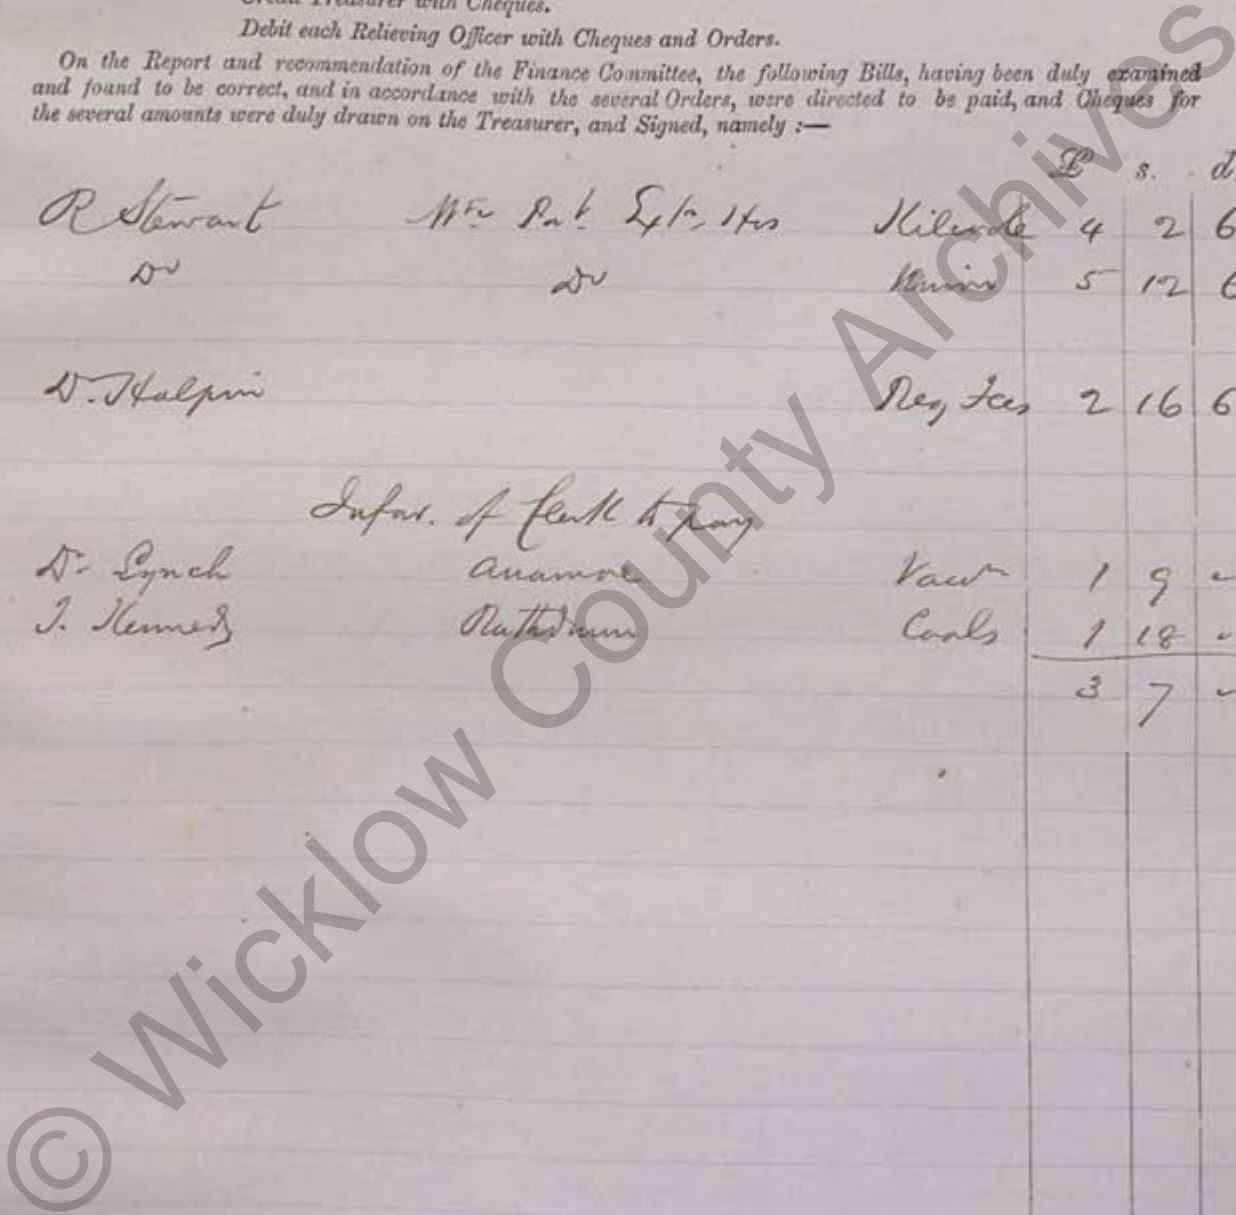 Treasurer with Cheques.
Debit each Relieving Officer with Cheques and Orders.
On the Report and recommendation of the Finance Committee, the following Bills, having been duly examined
and found to be correct, and in accordance with the several Orders, were directed to be paid, and Cheques for
the several amounts were duly drawn on the Treasurer, and Signed, namely :—
£ s. d
R Stewart 4 2 6
Do Do 5 12 6
D. Halpin Reg Fees 2 16 6
of Clerk to pay
Dr Lynch Anamoe Vacn 1 9 -
J. Kennedy Rathdrum Coals 1 18 -
3 7 -
© Wicklow County Archives